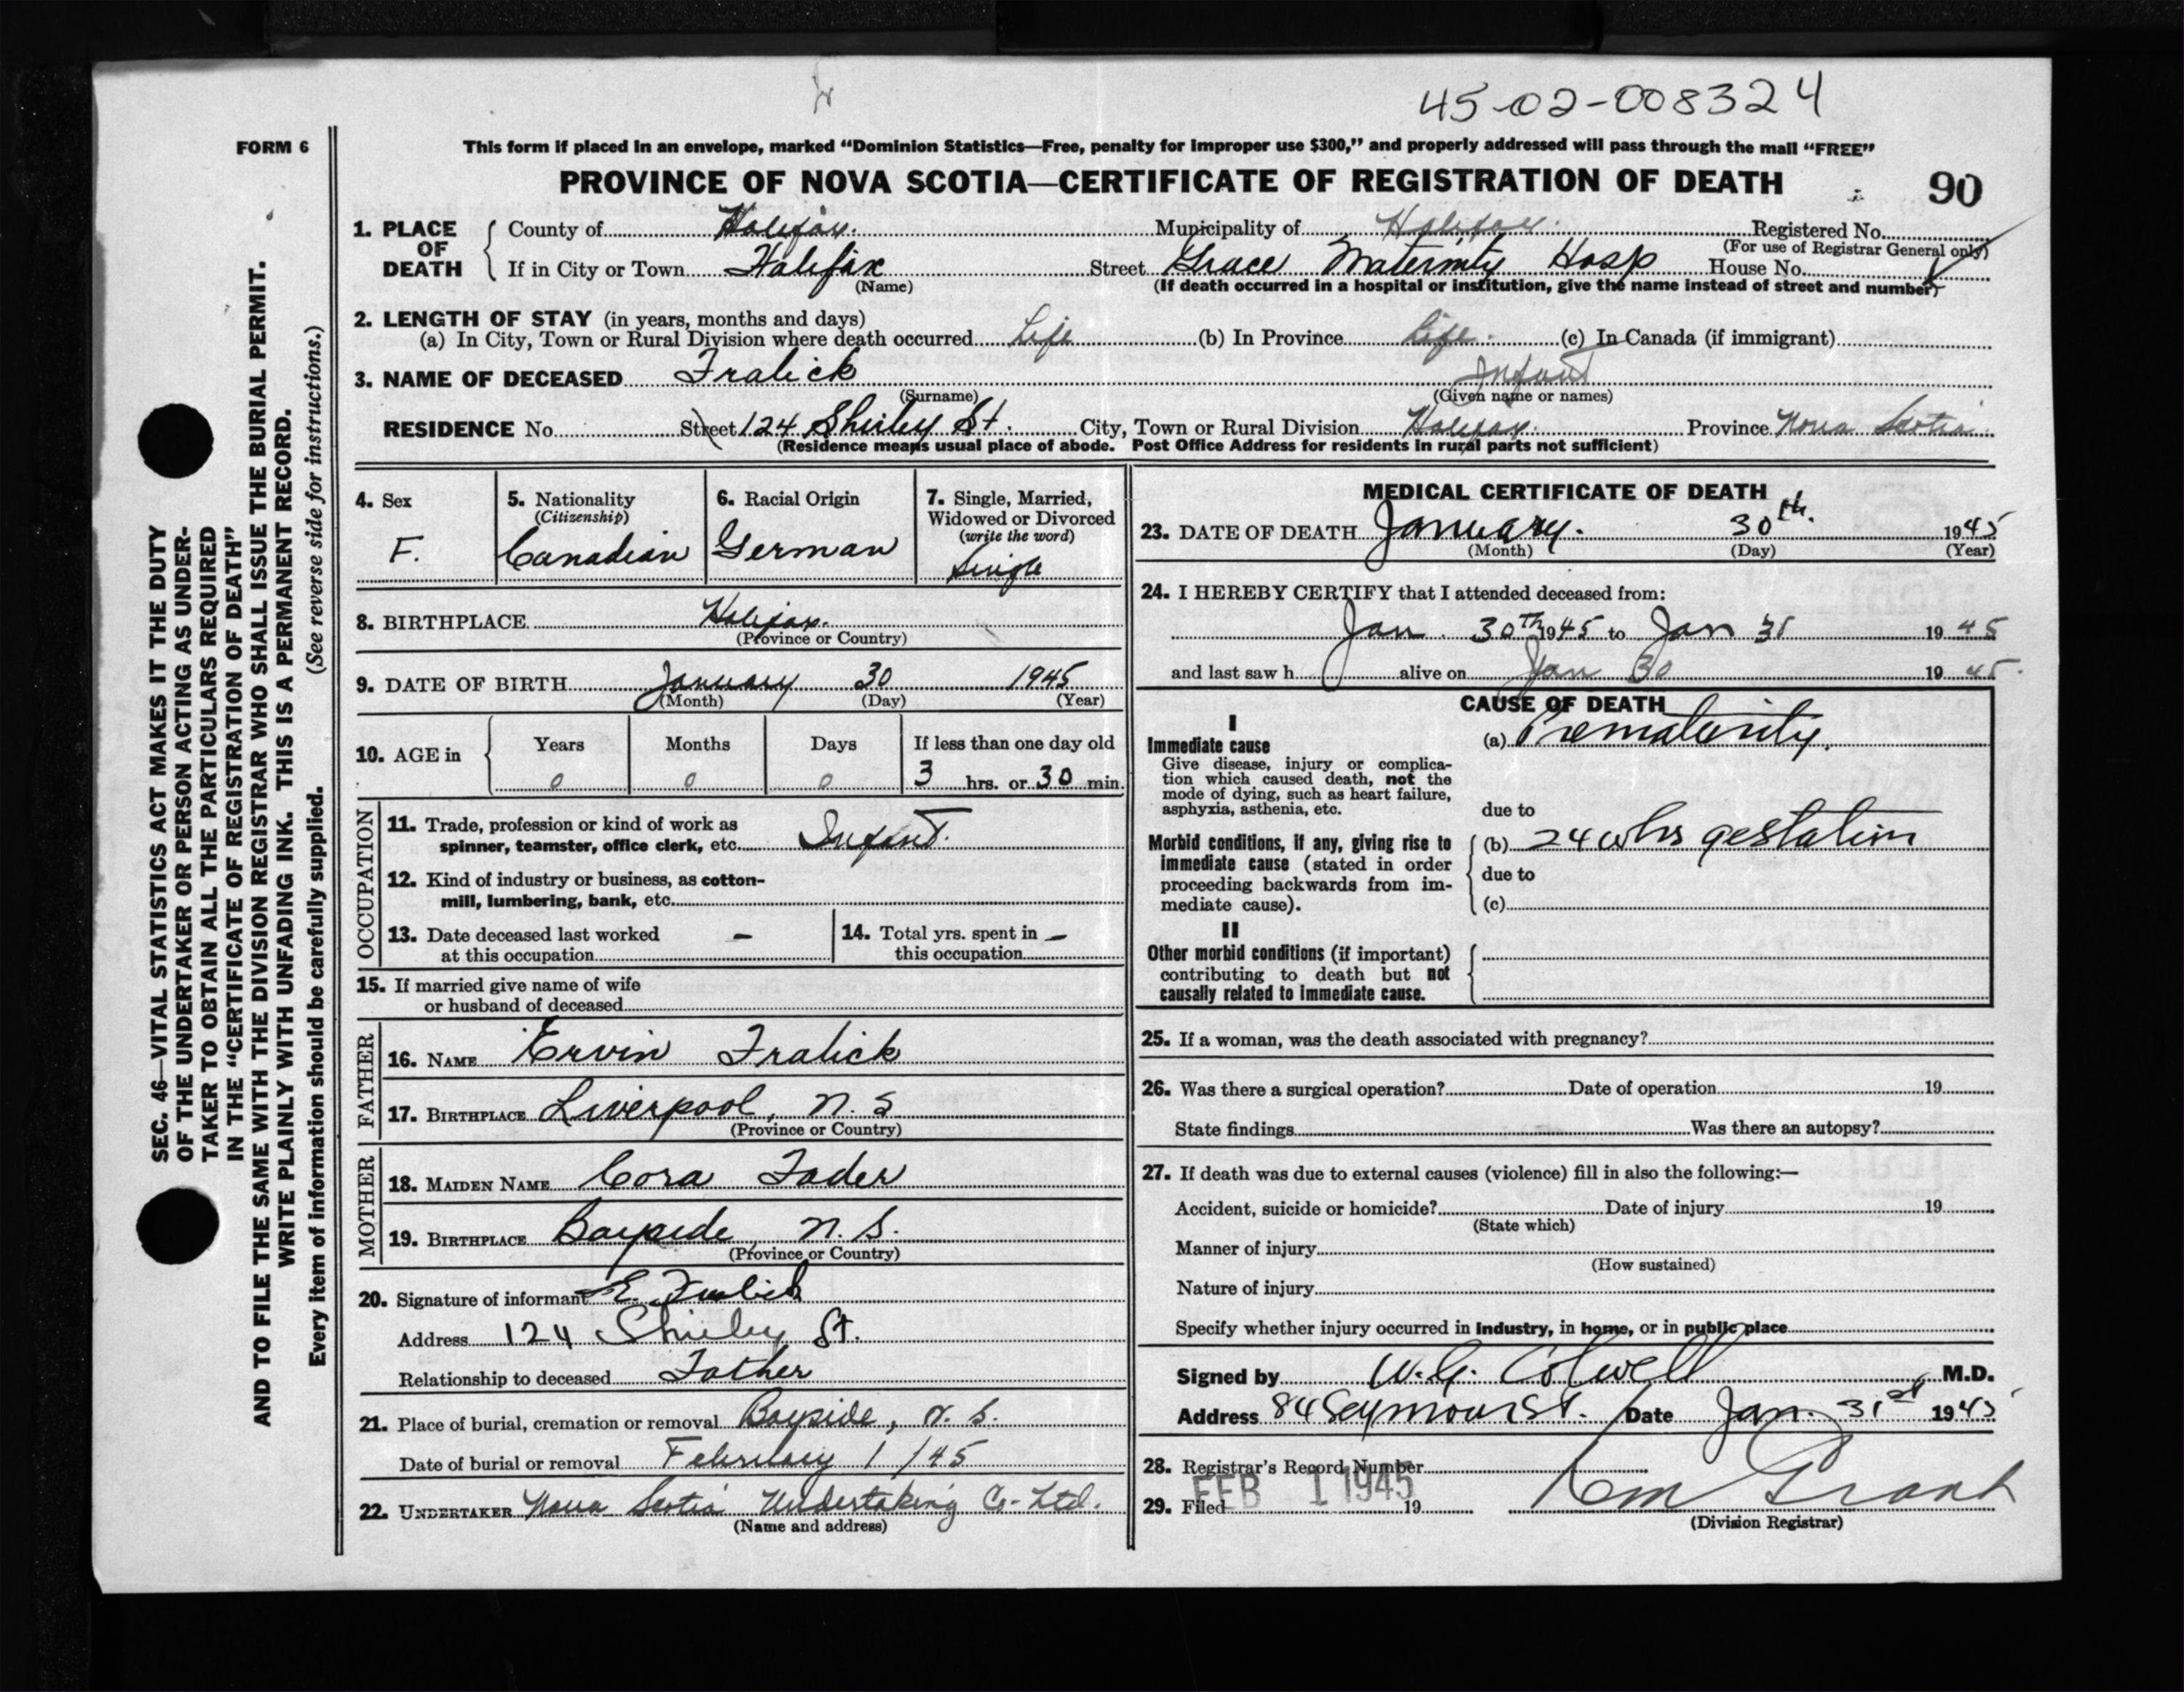 45-02-008324
FORM 6
This form if placed in an envelope, marked “Dominion Statistics—Free, penalty for improper use $300,” and properly addressed will pass through the mail “FREE”
PROVINCE OF NOVA SCOTIA—CERTIFICATE OF REGISTRATION OF DEATH
90
1. PLACE OF DEATH
County of Halifax. Municipality of Halifax. Registered No.
(For use of Registrar General only)
If in City or Town Halifax Street Grace Maternity Hosp House No.
(Name) (If death occurred in a hospital or institution, give the name instead of street and number)
2. LENGTH OF STAY (in years, months and days)
(a) In City, Town or Rural Division where death occurred Life (b) In Province Life. (c) In Canada (if immigrant)
3. NAME OF DECEASED Fralick Infant
(Surname) (Given name or names)
RESIDENCE No. Street 124 Shirley St. City, Town or Rural Division Halifax. Province Nova Scotia.
(Residence means usual place of abode. Post Office Address for residents in rural parts not sufficient)
4. Sex
F.
5. Nationality
(Citizenship)
Canadian
6. Racial Origin
German
7. Single, Married,
Widowed or Divorced
(write the word)
Single
8. BIRTHPLACE Halifax.
(Province or Country)
9. DATE OF BIRTH January 30 1945
(Month) (Day) (Year)
10. AGE in Years Months Days If less than one day old
0 0 0 3 hrs. or 30 min.
OCCUPATION
11. Trade, profession or kind of work as
spinner, teamster, office clerk, etc. Infant.
12. Kind of industry or business, as cotton-
mill, lumbering, bank, etc.
13. Date deceased last worked –
at this occupation
14. Total yrs. spent in –
this occupation
15. If married give name of wife
or husband of deceased
FATHER
16. NAME Ervin Fralick
17. BIRTHPLACE Liverpool, N.S
(Province or Country)
MOTHER
18. MAIDEN NAME Cora Fader
19. BIRTHPLACE Bayside N.S.
(Province or Country)
20. Signature of informant E. Fralick
Address 124 Shirley St.
Relationship to deceased Father
21. Place of burial, cremation or removal Bayside, N.S.
Date of burial or removal February 1/45
22. UNDERTAKER Nova Scotia Undertaking Co-Ltd.
(Name and address)
MEDICAL CERTIFICATE OF DEATH
23. DATE OF DEATH January. 30th. 1945
(Month) (Day) (Year)
24. I HEREBY CERTIFY that I attended deceased from:
Jan. 30TH 1945 to Jan 31 1945
and last saw h alive on Jan 30 1945.
CAUSE OF DEATH
I
Immediate cause
Give disease, injury or complica-
tion which caused death, not the
mode of dying, such as heart failure,
asphyxia, asthenia, etc.
(a) Prematurity.
due to
Morbid conditions, if any, giving rise to
immediate cause (stated in order
proceeding backwards from im-
mediate cause).
(b) 24 whs gestation
due to
(c)
II
Other morbid conditions (if important)
contributing to death but not
causally related to immediate cause.
25. If a woman, was the death associated with pregnancy?
26. Was there a surgical operation? Date of operation 19
State findings Was there an autopsy?
27. If death was due to external causes (violence) fill in also the following:—
Accident, suicide or homicide? Date of injury 19
(State which)
Manner of injury
(How sustained)
Nature of injury
Specify whether injury occurred in industry, in home, or in public place
Signed by W.G. Colwell M.D.
Address 84 Seymour St. Date Jan. 31st 1945
28. Registrar's Record Number
29. Filed FEB 1 1945 19
Grant
(Division Registrar)
SEC. 46—VITAL STATISTICS ACT MAKES IT THE DUTY
OF THE UNDERTAKER OR PERSON ACTING AS UNDER-
TAKER TO OBTAIN ALL THE PARTICULARS REQUIRED
IN THE “CERTIFICATE OF REGISTRATION OF DEATH”
AND TO FILE THE SAME WITH THE DIVISION REGISTRAR WHO SHALL ISSUE THE BURIAL PERMIT.
WRITE PLAINLY WITH UNFADING INK. THIS IS A PERMANENT RECORD.
Every item of information should be carefully supplied. (See reverse side for instructions.)